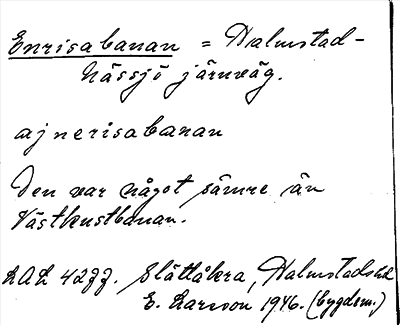 Enrisabanan = Halmstad-
Nässjö järnväg.
ajnerisabanan
Den var något sämre än
Västkustbanan.
LAL 4277. Slättåkra, Halmstads
E. Larsson 1946. (bygdem.)